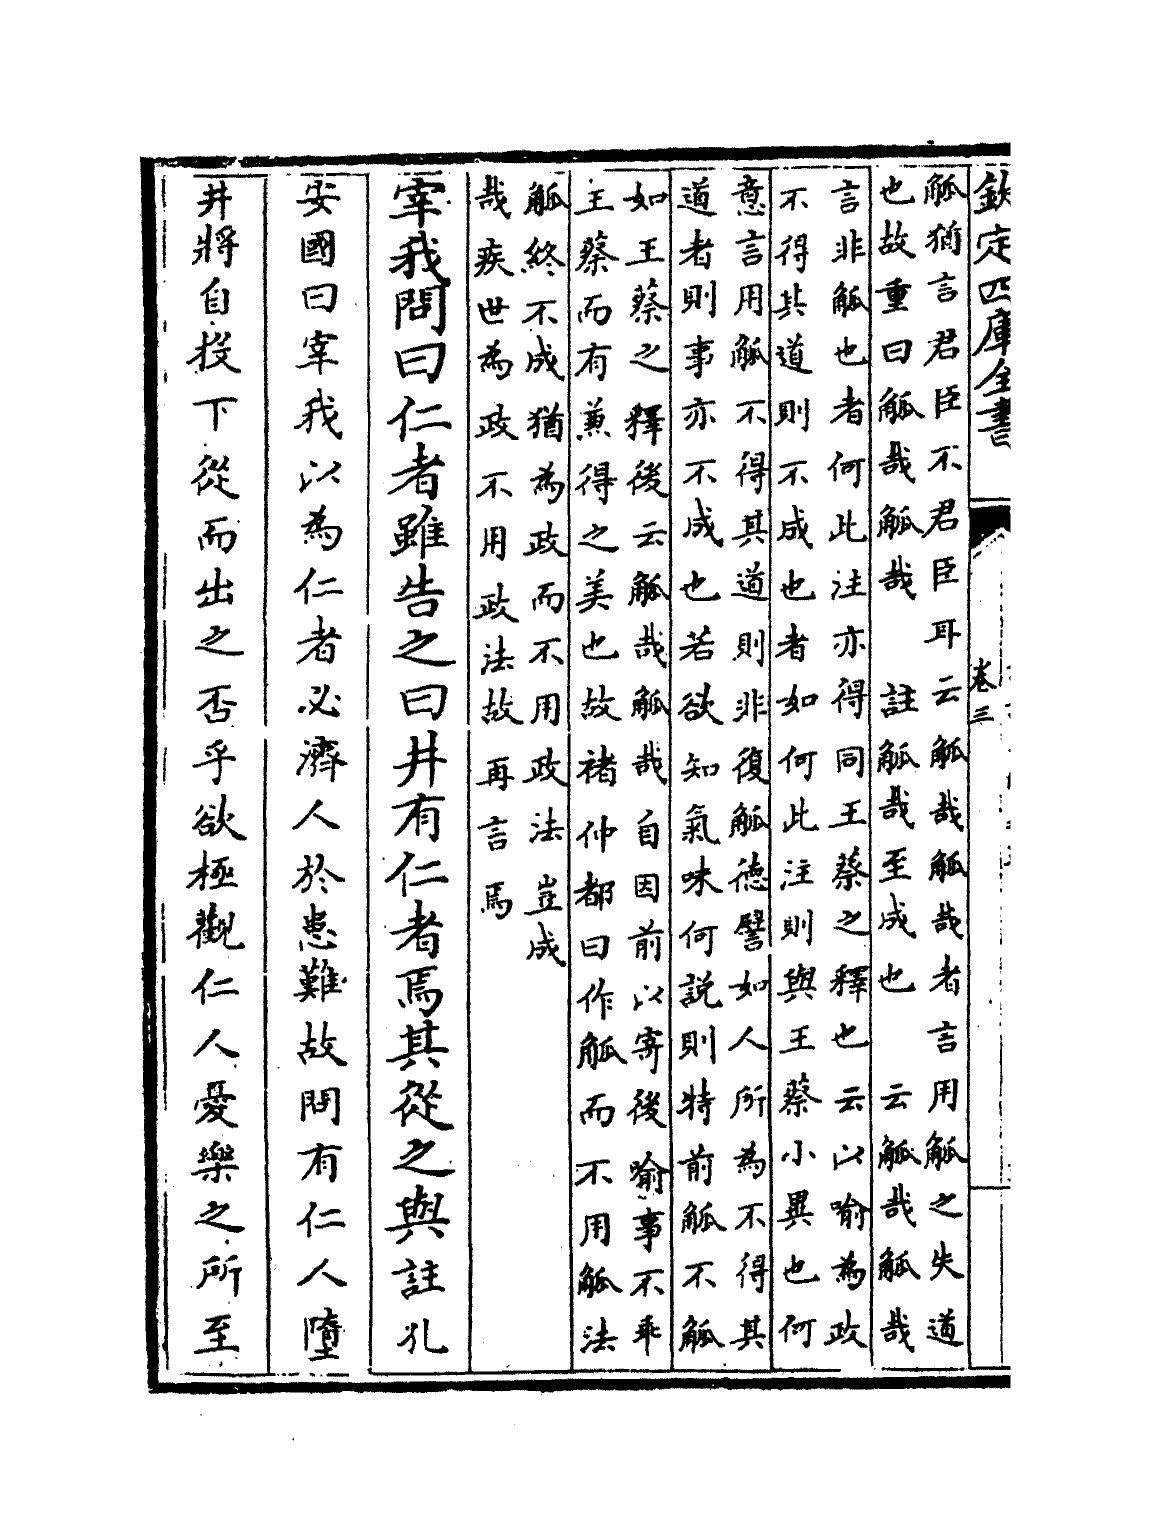 欽定四庫全書
卷三
觚猶言君臣不君臣耳云觚哉觚哉者言用觚之失道
也故重曰觚哉觚哉　註觚哉至成也　云觚哉觚哉
言非觚也者何此注亦得同王蔡之釋也云以喻為政
不得其道則不成也者如何此注則與王蔡小異也何
意言用觚不得其道則非復觚德譬如人所為不得其
道者則事亦不成也若欲知氣味何説則特前觚不觚
如王蔡之釋後云觚哉觚哉自因前以寄後喻事不乖
王蔡而有兼得之美也故褚仲都曰作觚而不用觚法
觚終不成猶為政而不用政法豈成
哉疾世為政不用政法故再言焉
宰我問曰仁者雖告之曰井有仁者焉其從之與註孔
安國曰宰我以為仁者必濟人於患難故問有仁人墮
井將自投下從而出之否乎欲極觀仁人憂樂之所至